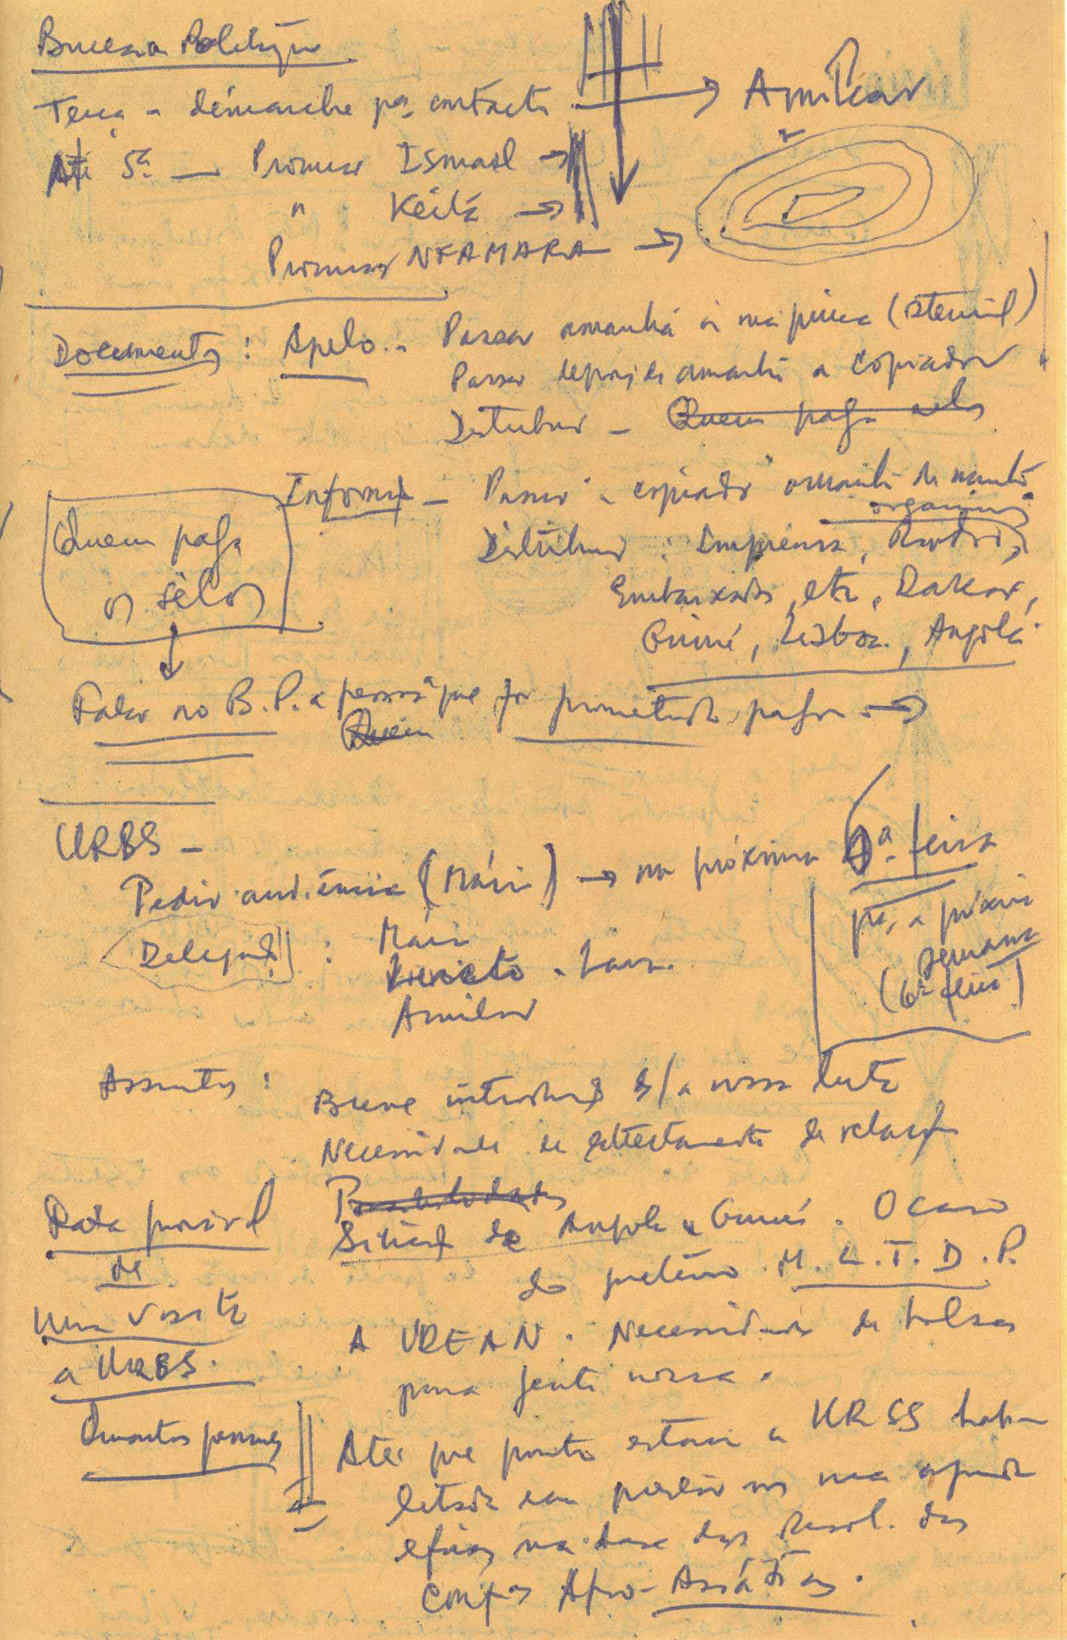 Bureau Político
Terça - démarche pª contacto → Amílcar
Até 5ª — Procurar Ismael →
" Keita →
Procurar NFAMARA →
Documentos: Apelo - Passar amanhã à máquina (stencil)
Passar depois de amanhã a copiador
Distribuir - Quem paga selos
Informe - Passar a copiador amanhã de manhã
organismos
Distribuir: Imprensa,
Embaixadas, etc, Dakar,
Guiné, Lisboa, Angola
Quem paga
os sêlos
↓
Falar no B.P. a pessoa que prometeu pagar →
Quem
URSS -
Pedir audiência (Mário) → na próxima 6ª feira
pª a próxima
semana
(6ª feira)
Delegação: Mário
Lara
Amílcar
Assuntos: Breve introdução s/ a nossa luta
Necessidade de estreitamento de relações
Possibilidades
Situação de Angola e Guiné. O caso
do M.L.T.D.P.
A UDEAN. Necessidade de bolsas
para gente nossa.
Data provável
de
uma visita
a URSS.
Quantas pessoas
Até que ponto estaria a URSS habi-
litada em nos uma ajuda
eficaz na base das Resol. das
Confªs Afro-Asiáticas.